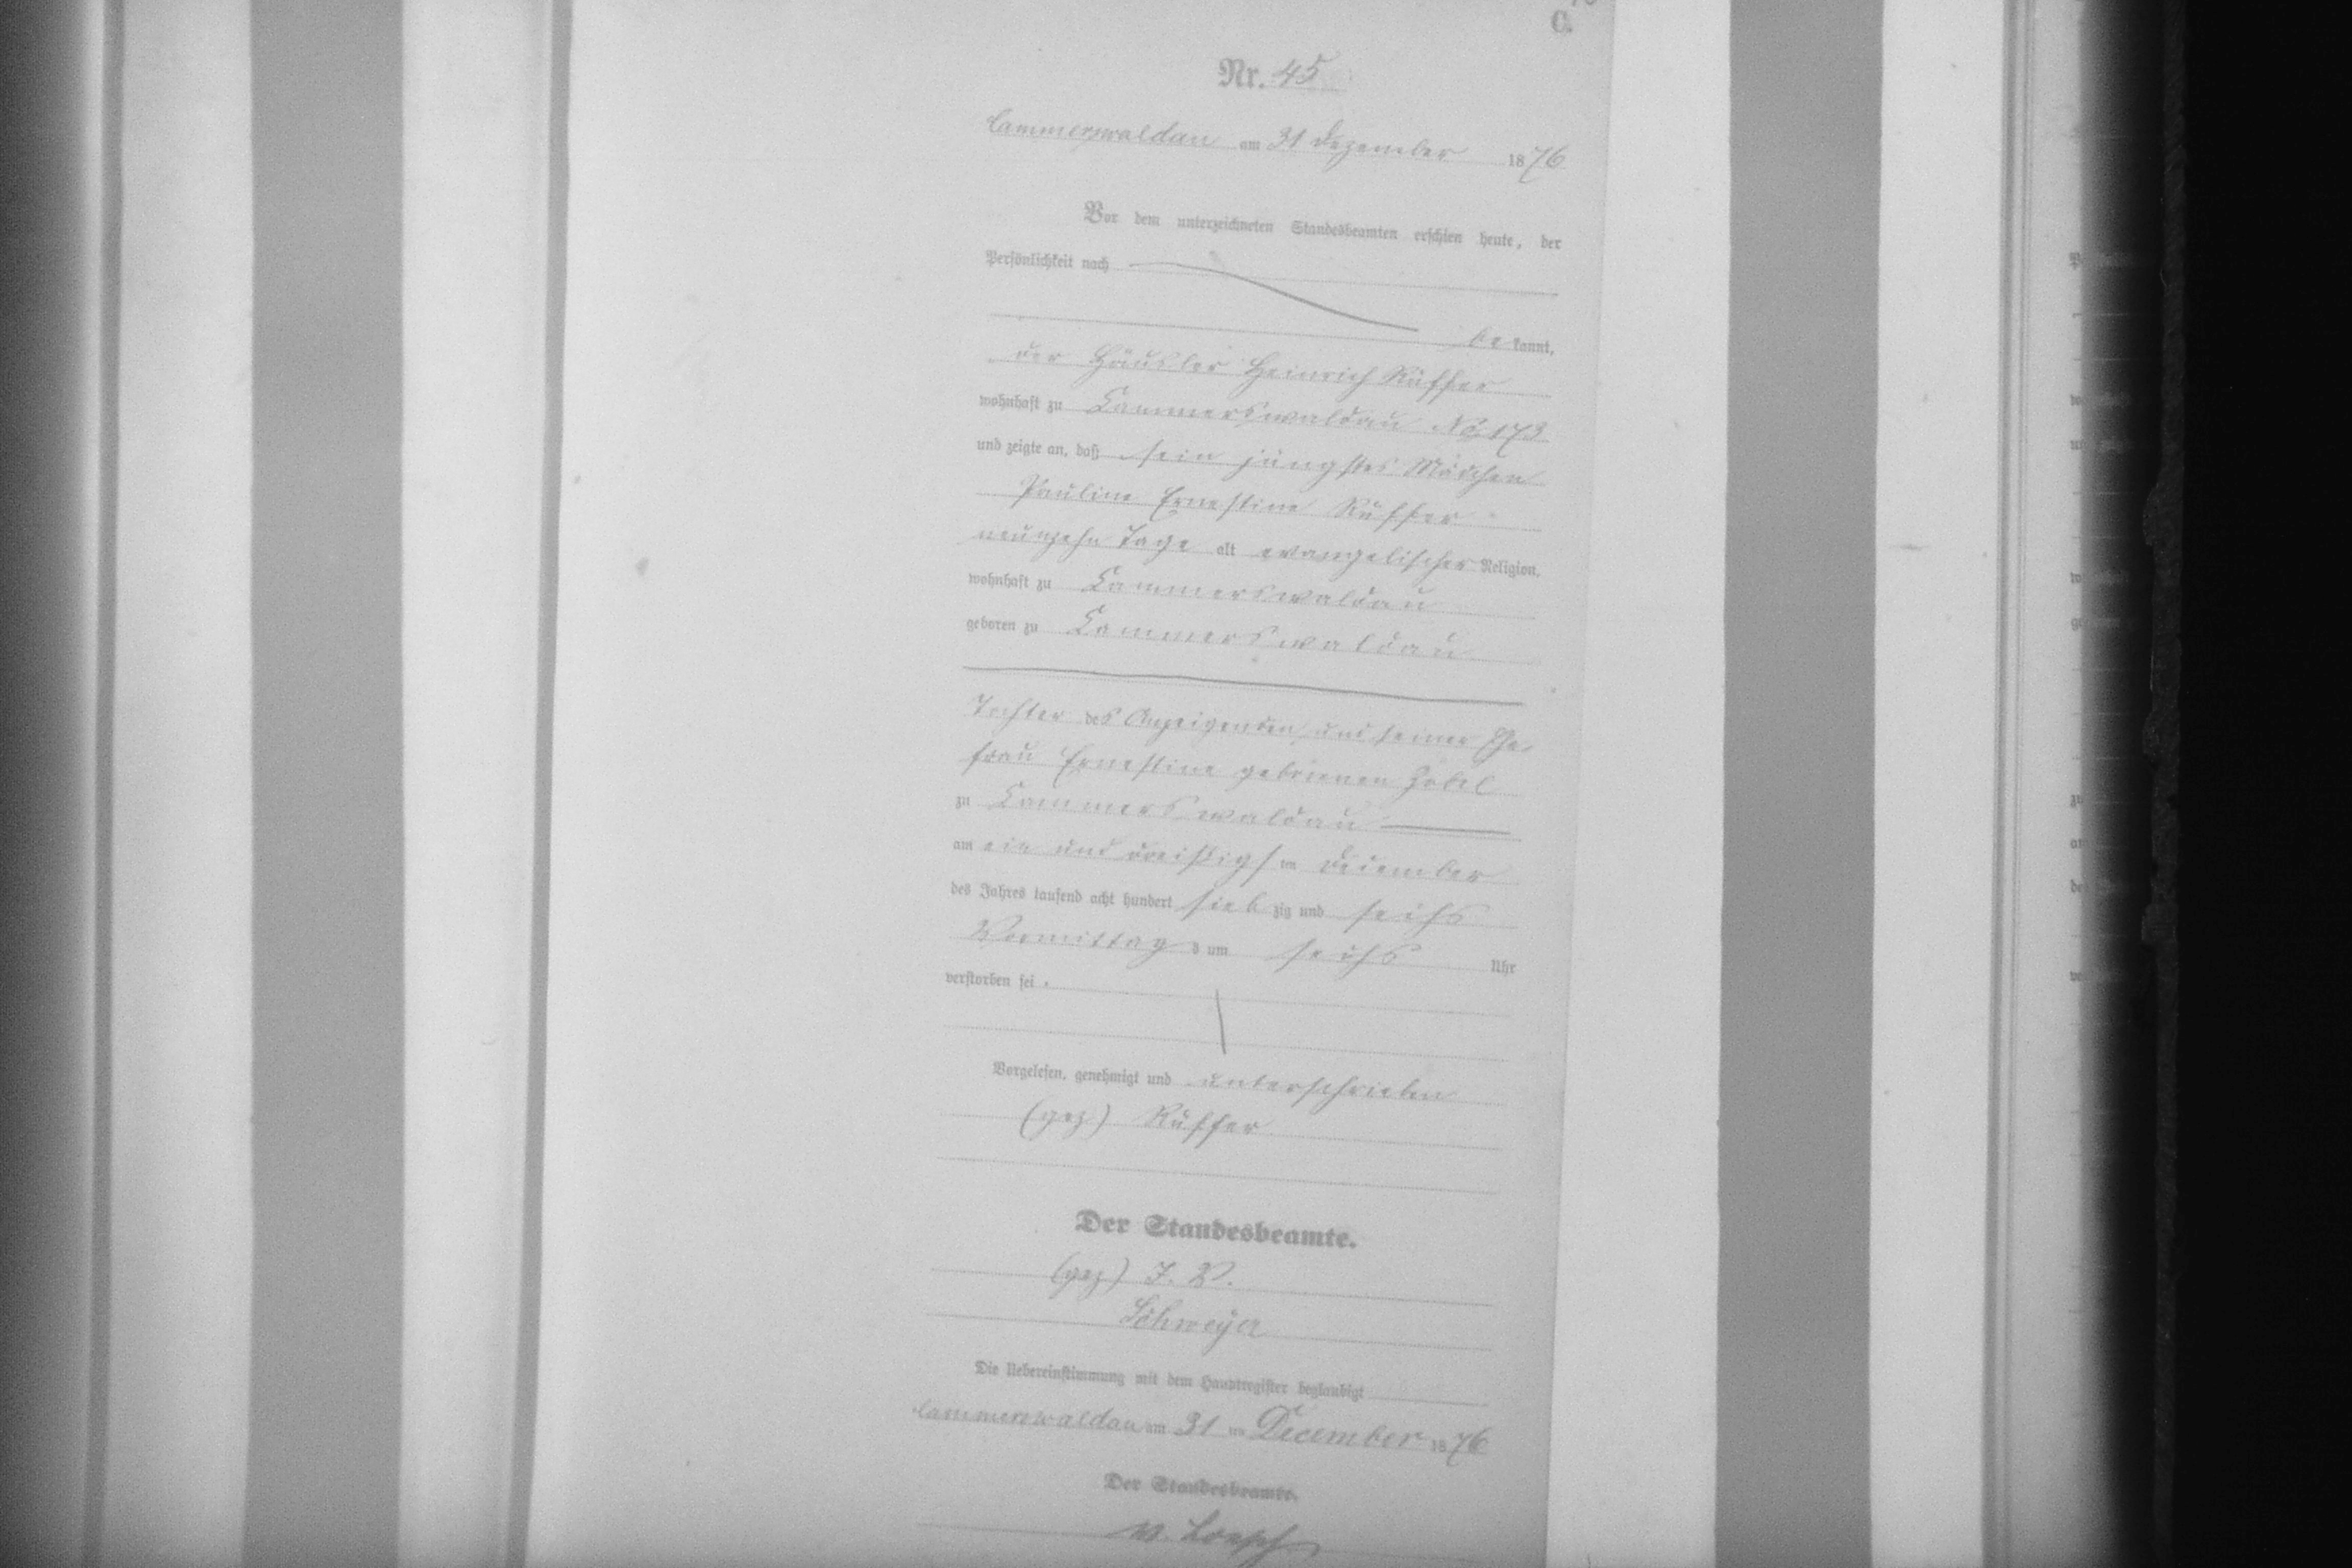 C.
Nr. 45
Cammerswaldau am 31 Dezember 1876
Vor dem unterzeichneten Standesbeamten erschien heute, der
Persönlichkeit nach
be kannt,
der Häusler Heinrich Rüffer
wohnhaft zu Cammerswaldau No 173
und zeigte an, daß sein jüngstes Mädchen
Pauline Ernestine Rüffer
neunzehn Tage alt evangelischer Religion,
wohnhaft zu Cammerswaldau
geboren zu Cammerswaldau
Tochter des Anzeigenden und seiner Ehe-
frau Ernestine geborenen
zu Cammerswaldau
am ein und dreißigsten December
des Jahres tausend acht hundert sieb zig und sechs
Vormittag s um sechs Uhr
verstorben sei.
Vorgelesen, genehmigt und unterschrieben
(gez) Rüffer
Der Standesbeamte.
(gez) I. V.
Schweyer
Die Uebereinstimmung mit dem Hauptregister beglaubigt
Cammerswaldau am 31 ten December 1876
Der Standesbeamte.